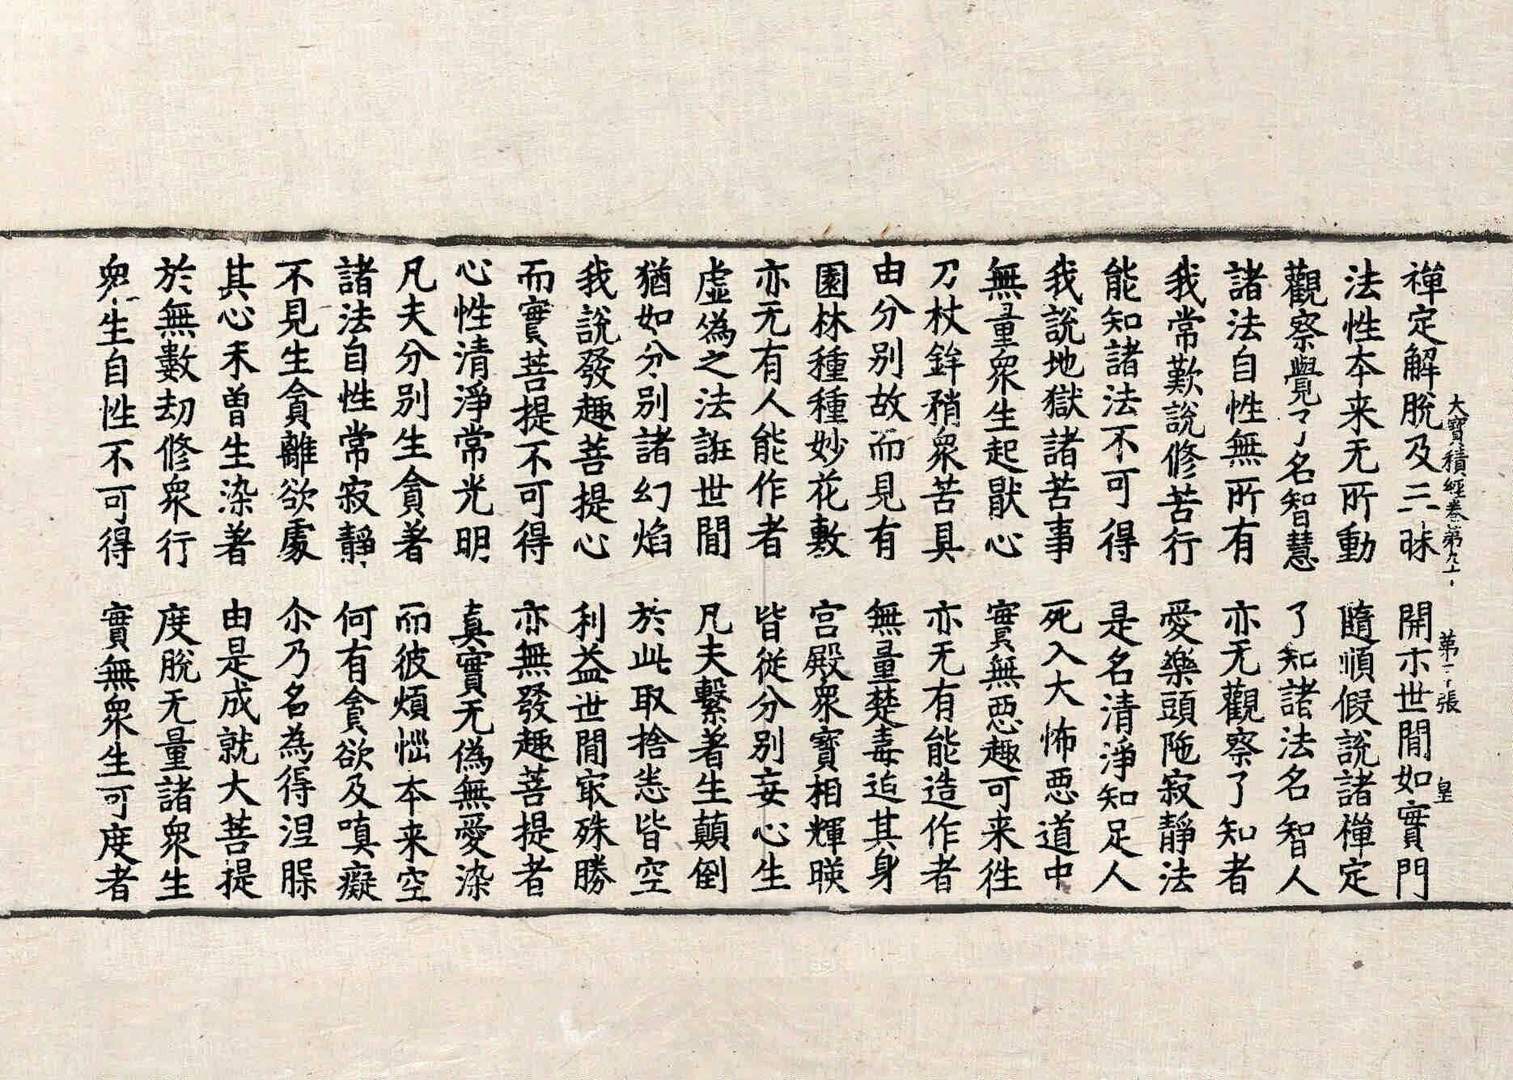 禪定解脫及三昧 開示世間如實門
大寶積經卷第九十 第十張 皇
法性本来无所動 隨順假說諸禪定
觀察覺了名智慧 了知諸法名智人
諸法自性無所有 亦无觀察了知者
我常歎說修苦行 愛樂頭陁寂靜法
能知諸法不可得 是名清淨知足人
我說地獄諸苦事 死入大怖惡道中
無量衆生起猒心 實無惡趣可来往
刀杖鉾矟衆苦具 亦无有能造作者
由分別故而見有 無量楚毒迫其身
園林種種妙花敷 宮殿衆寶相輝暎
亦无有人能作者 皆從分別妄心生
虛僞之法誑世間 凡夫繫著生顛倒
猶如分別諸幻焰 於此取捨悉皆空
我說發趣菩提心 利益世間㝡殊勝
而實菩提不可得 亦無發趣菩提者
心性清淨常光明 真實无僞無愛染
凡夫分別生貪著 而彼煩惱本来空
諸法自性常寂靜 何有貪欲及嗔癡
不見生貪離欲處 尒乃名為得涅槃
其心未曾生染著 由是成就大菩提
於無數劫修衆行 度脫无量諸衆生
衆生自性不可得 實無衆生可度者